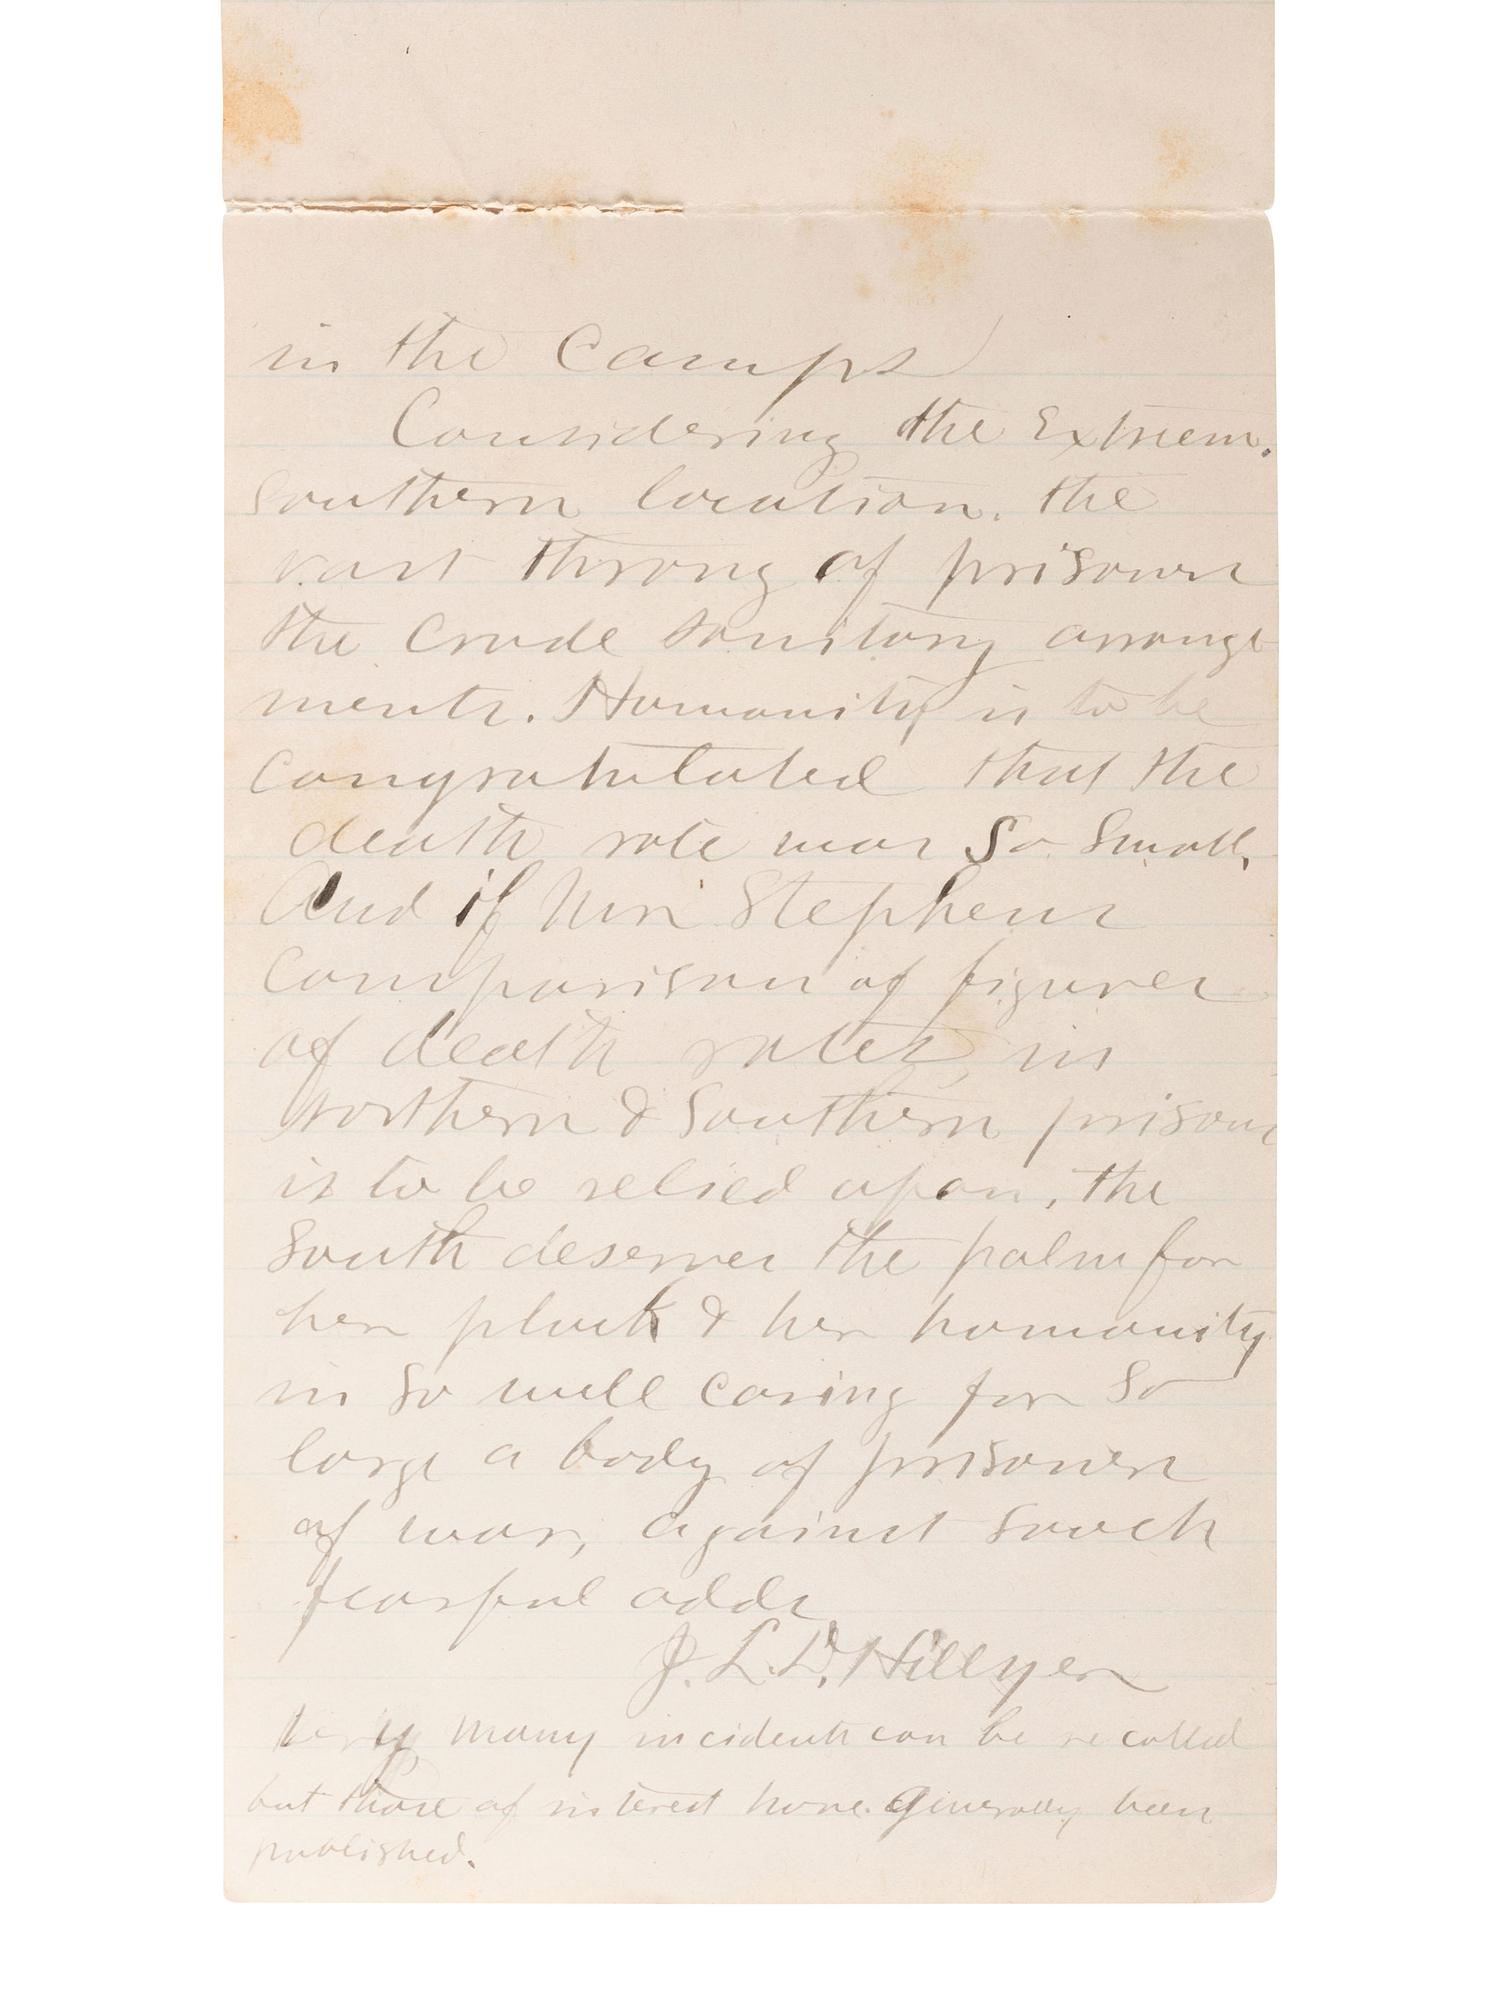 in the Camps
Considering the Extrem.
Southern location. the
vast throng of prisoners
the Crude sanitary arrange
ments. Humanity is to be
Congratulated that the
death rate was So Small,
And if Mr. Stephens
Comparison of figures
of death rates, in
Northern & Southern prisons
is to be relied upon, the
South deserves the palm for
her pluck & her homanity
in So well caring for So
large a body of prisoners
of war, against Souch
fearful odds
J. L. D. Hillyer
Very many incidents can be recalled
but those of interest have Generally been
published.